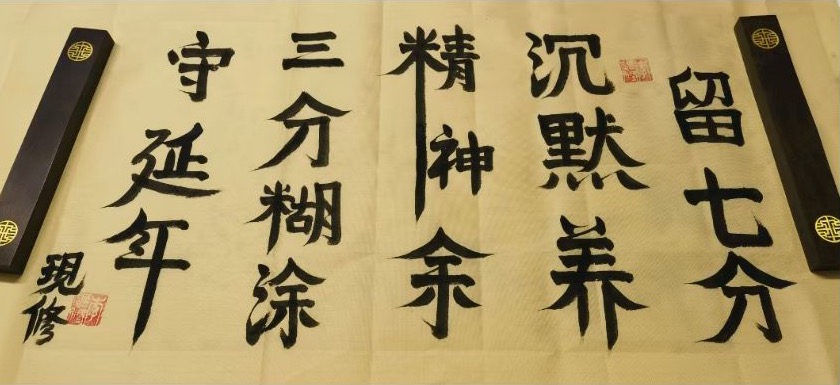 留七分
沉默养
精神余
三分糊涂
守延年
現修